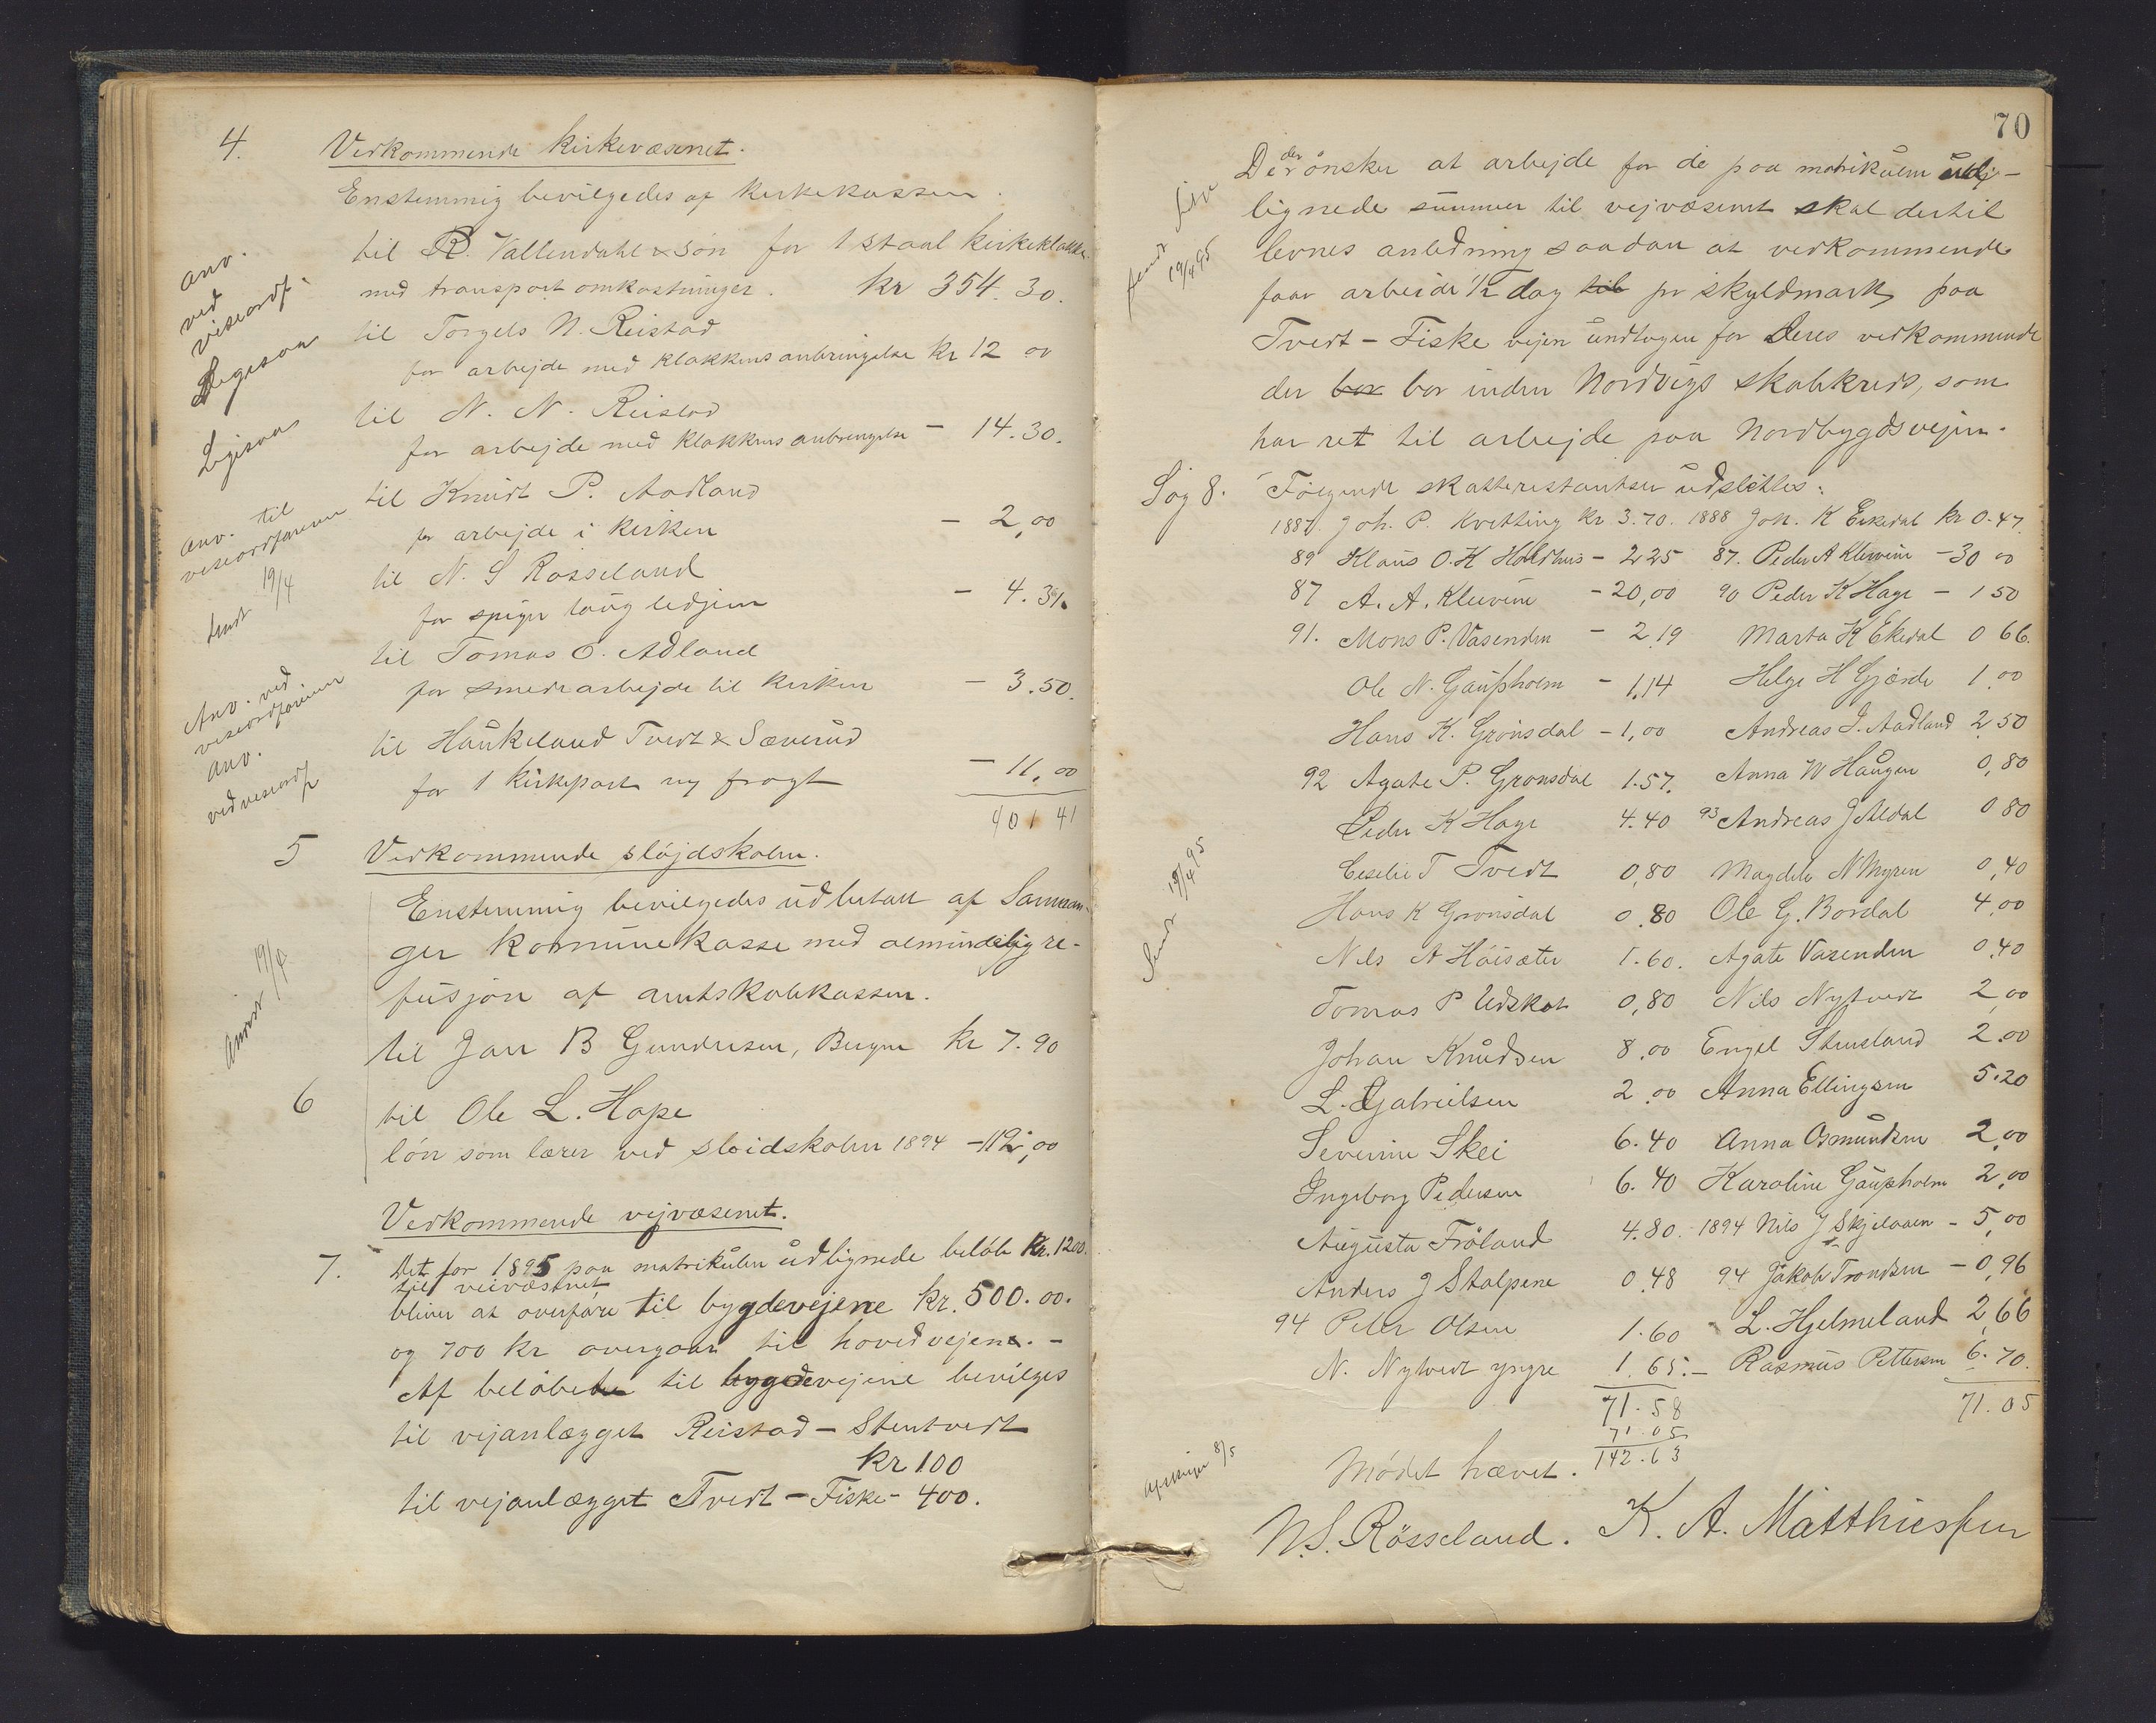 4. Vedkommende kirkevæsenet.
Enstemmig bevilgedes af kirkekassen
til R. Vallendahl & Søn for 1 staal kirkeklokke
med transport omkostninger. kr 354.30.
til Torgels N. Reistad
for arbejde med klokkens anbringelse kr 12 00
til N. N. Reistad
for arbejde med klokkens anbringelse - 14.30.
til Knudt P. Aadland
for arbejde i kirken - 2,00
til N. S Rosseland
for spiger taug ledjern - 4.31.
til Tomas O. Adland
for smedearbejde til kirken - 3.50.
til Haukeland Tvedt & Sæverud
for 1 kirkeport og fragt - 11,00
401 41
anv.
ved
viseordf.
Ligesaa
Ligesaa
anv. til
viseordføreren
19/4
sendt
Anv. ved
viseordføreren
anv.
ved viseordf
5 Vedkommende sløjdskolen.
Enstemmig bevilgedes udbetalt af Samnan-
ger kommunekasse med almindelig re-
fusjon af amtskolekassen.
til Jan B Gundersen, Bergen kr 7.90
6 til Ole L. Hope
løn som lærer ved sloidskolen 1894 - 112,00
Anvist 19/4
Vedkommende vejvæsenet.
7. Det for 1895 paa matrikulen udlignede beløb kr. 1200.
til veivæsenet
bliver at overføre til bygdevejene kr. 500.00.
og 700 kr overgaar til hovedvejene. -
Af beløbet til bygdevejene bevilges
til vejanlægget Reistad - Stentvedt
kr 100
til vejanlægget Tvedt - Fiske - 400.
70
De der ønsker at arbejde for de paa matrikulen udj-
lignede summer til vejvæsenet skal dertil
levnes anledning saadan at vedkommende
faar arbeide 1/2 dag til pr skyldmark paa
Tvedt - Fiske vejen undtagen for deres vedkommende
der bor bor inden Nordvigs skolekreds, som
har ret til arbejde paa Nordbygdsvejen.
19/4 95
Sag 8. Følgende skatterestantser udslettes:
1887. Joh. P. Kvitting kr. 3.70. 1888 Joh. K Eikedal kr 0.47.
89 Klaus O. K Holdhus - 2 25 87. Peder A Kleivene - 30 00
87 A. A. Kleivene - 20,00 90 Peder K Hage - 1 50
91. Mons P. Vasenden - 2 19 Marta K Ekedal 0 66.
Ole N. Gaupholm - 1,14 Helge H Gjærde 1,00
Hans K. Grønsdal - 1,00 Andreas I. Aadland 2,50
92 Agate P. Grønsdal 1.57. Anna W Haugen 0,80
Peder K Hage 4.40 93 Andreas J Aldal 0 80
Ceselie T Tvedt 0,80 Magdele N Myren 0,40
Hans K Grønsdal 0.80 Ole G. Bordal 4,00
Nils A Høisæter 1.60. Agate Vasenden 0,40
Tomas P Udskot 0,80 Nils Nytvedt 2,00
Johan Knudsen 8.00 Engel Stensland 2.00
L. Gabrielsen 2.00 Anna Ellingsen 5.20
Severine Skei 6.40 Anna Osmundsen 2,00
Ingeborg Pedersen 6.40 Karoline Gaupholm 2,00
Augusta Frøland 4.80. 1894 Nils J Skjelaaen - 5,00
Anders J Stolpene 0.48 94 Jakob Trondsen - 0,96
94 Peter Olsen 1.60 L. Hjelmeland 2,66
N. Nytvedt yngre 1.65. - Rasmus Pettersen 6.70.
71.58 71.05
71.05
142.63
Sendt 19/4 95
8/5
Mødet hævet.
N. S. Rösseland. K. A. Matthiesen